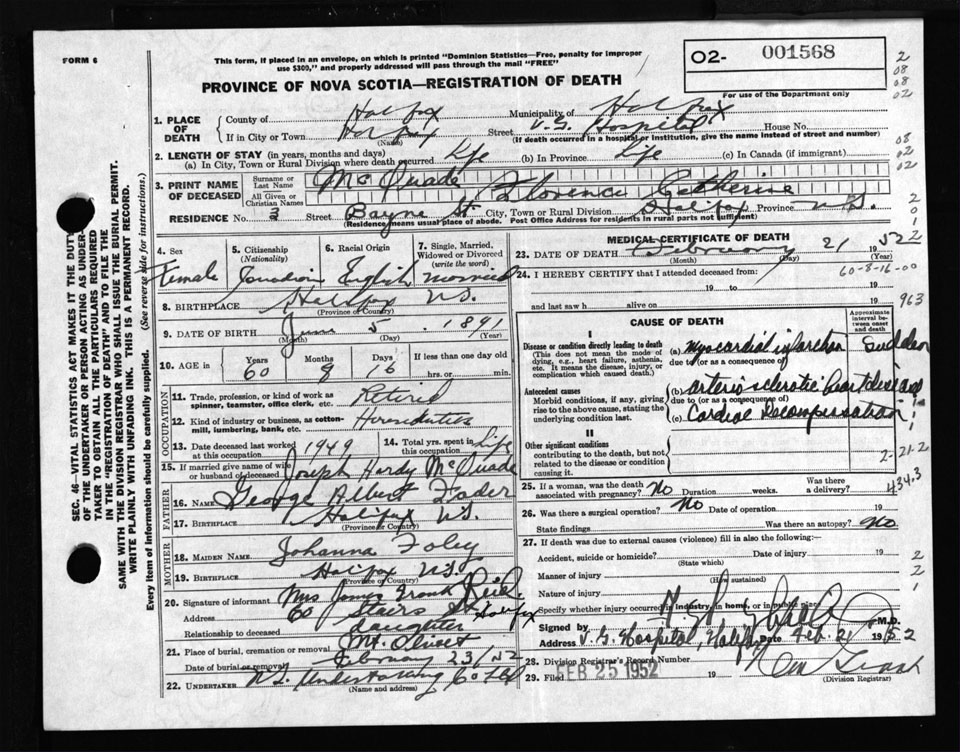 FORM 6
This form, if placed in an envelope, on which is printed "Dominion Statistics—Free, penalty for improper
use $300," and properly addressed will pass through the mail "FREE"
O2- 001568
For use of the Department only
PROVINCE OF NOVA SCOTIA—REGISTRATION OF DEATH
1. PLACE OF DEATH
County of Halifax Municipality of Halifax
If in City or Town Halifax Street V.G. Hospital House No.
(Name) (If death occurred in a hospital or institution, give the name instead of street and number)
2. LENGTH OF STAY (in years, months and days)
(a) In City, Town or Rural Division where death occurred Life (b) In Province Life (c) In Canada (if immigrant)
3. PRINT NAME OF DECEASED
Surname or Last Name McQuade, Florence Catherine
All Given or Christian Names
RESIDENCE No. 3 Street Bayne St. City, Town or Rural Division Halifax Province N.S.
(Residence means usual place of abode. Post Office Address for residents in rural parts not sufficient)
4. Sex Female
5. Citizenship (Nationality) Canadian
6. Racial Origin English
7. Single, Married, Widowed or Divorced (write the word) married
8. BIRTHPLACE Halifax N.S.
(Province or Country)
9. DATE OF BIRTH June 5, 1891
(Month) (Day) (Year)
10. AGE in Years 60 Months 8 Days 16 If less than one day old hrs. or min.
OCCUPATION
11. Trade, profession, or kind of work as spinner, teamster, office clerk, etc. Retired
12. Kind of industry or business, as cotton-mill, lumbering, bank, etc. Housduties
13. Date deceased last worked at this occupation 1949
14. Total yrs. spent in this occupation Life
15. If married give name of wife or husband of deceased Joseph Hardy McQuade
FATHER
16. NAME George Albert Foder
17. BIRTHPLACE Halifax N.S.
(Province or Country)
MOTHER
18. MAIDEN NAME Johanna Foley
19. BIRTHPLACE Halifax N.S.
(Province or Country)
20. Signature of informant Mrs James Frank
Address 60 Stairs St Halifax
Relationship to deceased daughter
21. Place of burial, cremation or removal Mt. Olivet
Date of burial or removal February 23/52
22. UNDERTAKER N.S. Undertaking Co Ltd
(Name and address)
MEDICAL CERTIFICATE OF DEATH
23. DATE OF DEATH February 21 1952
(Month) (Day) (Year)
24. I HEREBY CERTIFY that I attended deceased from:
60-8-16-00
19 to 19
and last saw h alive on 19
963
CAUSE OF DEATH
Approximate interval between onset and death
I
Disease or condition directly leading to death
(This does not mean the mode of dying, e.g., heart failure, asthenia, etc. It means the disease, injury, or complication which caused death.)
(a) myocardial infarction Sudden
due to (or as a consequence of)
Antecedent causes
Morbid conditions, if any, giving rise to the above cause, stating the underlying condition last.
(b) arteriosclerotic heart disease
due to (or as a consequence of)
(c) Cardiac Decompensation
II
Other significant conditions
contributing to the death, but not related to the disease or condition causing it.
2-21-2
25. If a woman, was the death associated with pregnancy? No Duration weeks. Was there a delivery?
434.3
26. Was there a surgical operation? No Date of operation 19
State findings Was there an autopsy? No
27. If death was due to external causes (violence) fill in also the following:
Accident, suicide or homicide? Date of injury 19
(State which)
Manner of injury
(How sustained)
Nature of injury
Specify whether injury occurred in industry, in home, or in public place
Signed by M.D.
Address V.G. Hospital, Halifax Date Feb. 21 1952
28. Division Registrar's Record Number
29. Filed FEB 25 1952 19
(Division Registrar)
SEC. 46—VITAL STATISTICS ACT MAKES IT THE DUTY
OF THE UNDERTAKER OR PERSON ACTING AS UNDER-
TAKER TO OBTAIN ALL THE PARTICULARS REQUIRED
IN THE "REGISTRATION OF DEATH" AND TO FILE THE
SAME WITH THE DIVISION REGISTRAR WHO SHALL ISSUE THE BURIAL PERMIT.
WRITE PLAINLY WITH UNFADING INK. THIS IS A PERMANENT RECORD.
Every item of information should be carefully supplied. (See reverse side for instructions.)